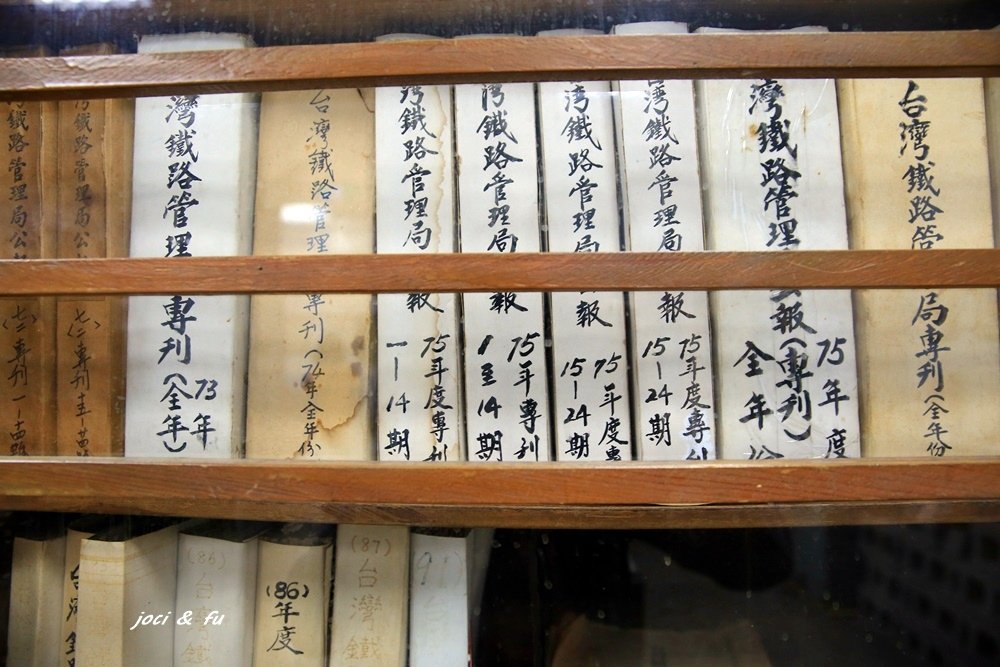 鐵路管理局公
七二專刊一-十四期
鐵路管理局公
七二專刊十五-廿四
灣鐵路管理
專刊(全年)
73年
台灣鐵路管理
專刊(74年全年份)
灣鐵路管理局
報
75年度專刊
一-14期
灣鐵路管理局
報
75年專刊
1至14期
灣鐵路管理局
報
75年度專
15-24期
灣鐵路管理局
報
75年度專刊
15-24期
灣鐵路管理
公報(專刊)
75年度
全年份
台灣鐵路管
局專刊(全年份
台灣
(86)
台灣鐵
(86)
年度
(87)
台灣鐵
joci & fu